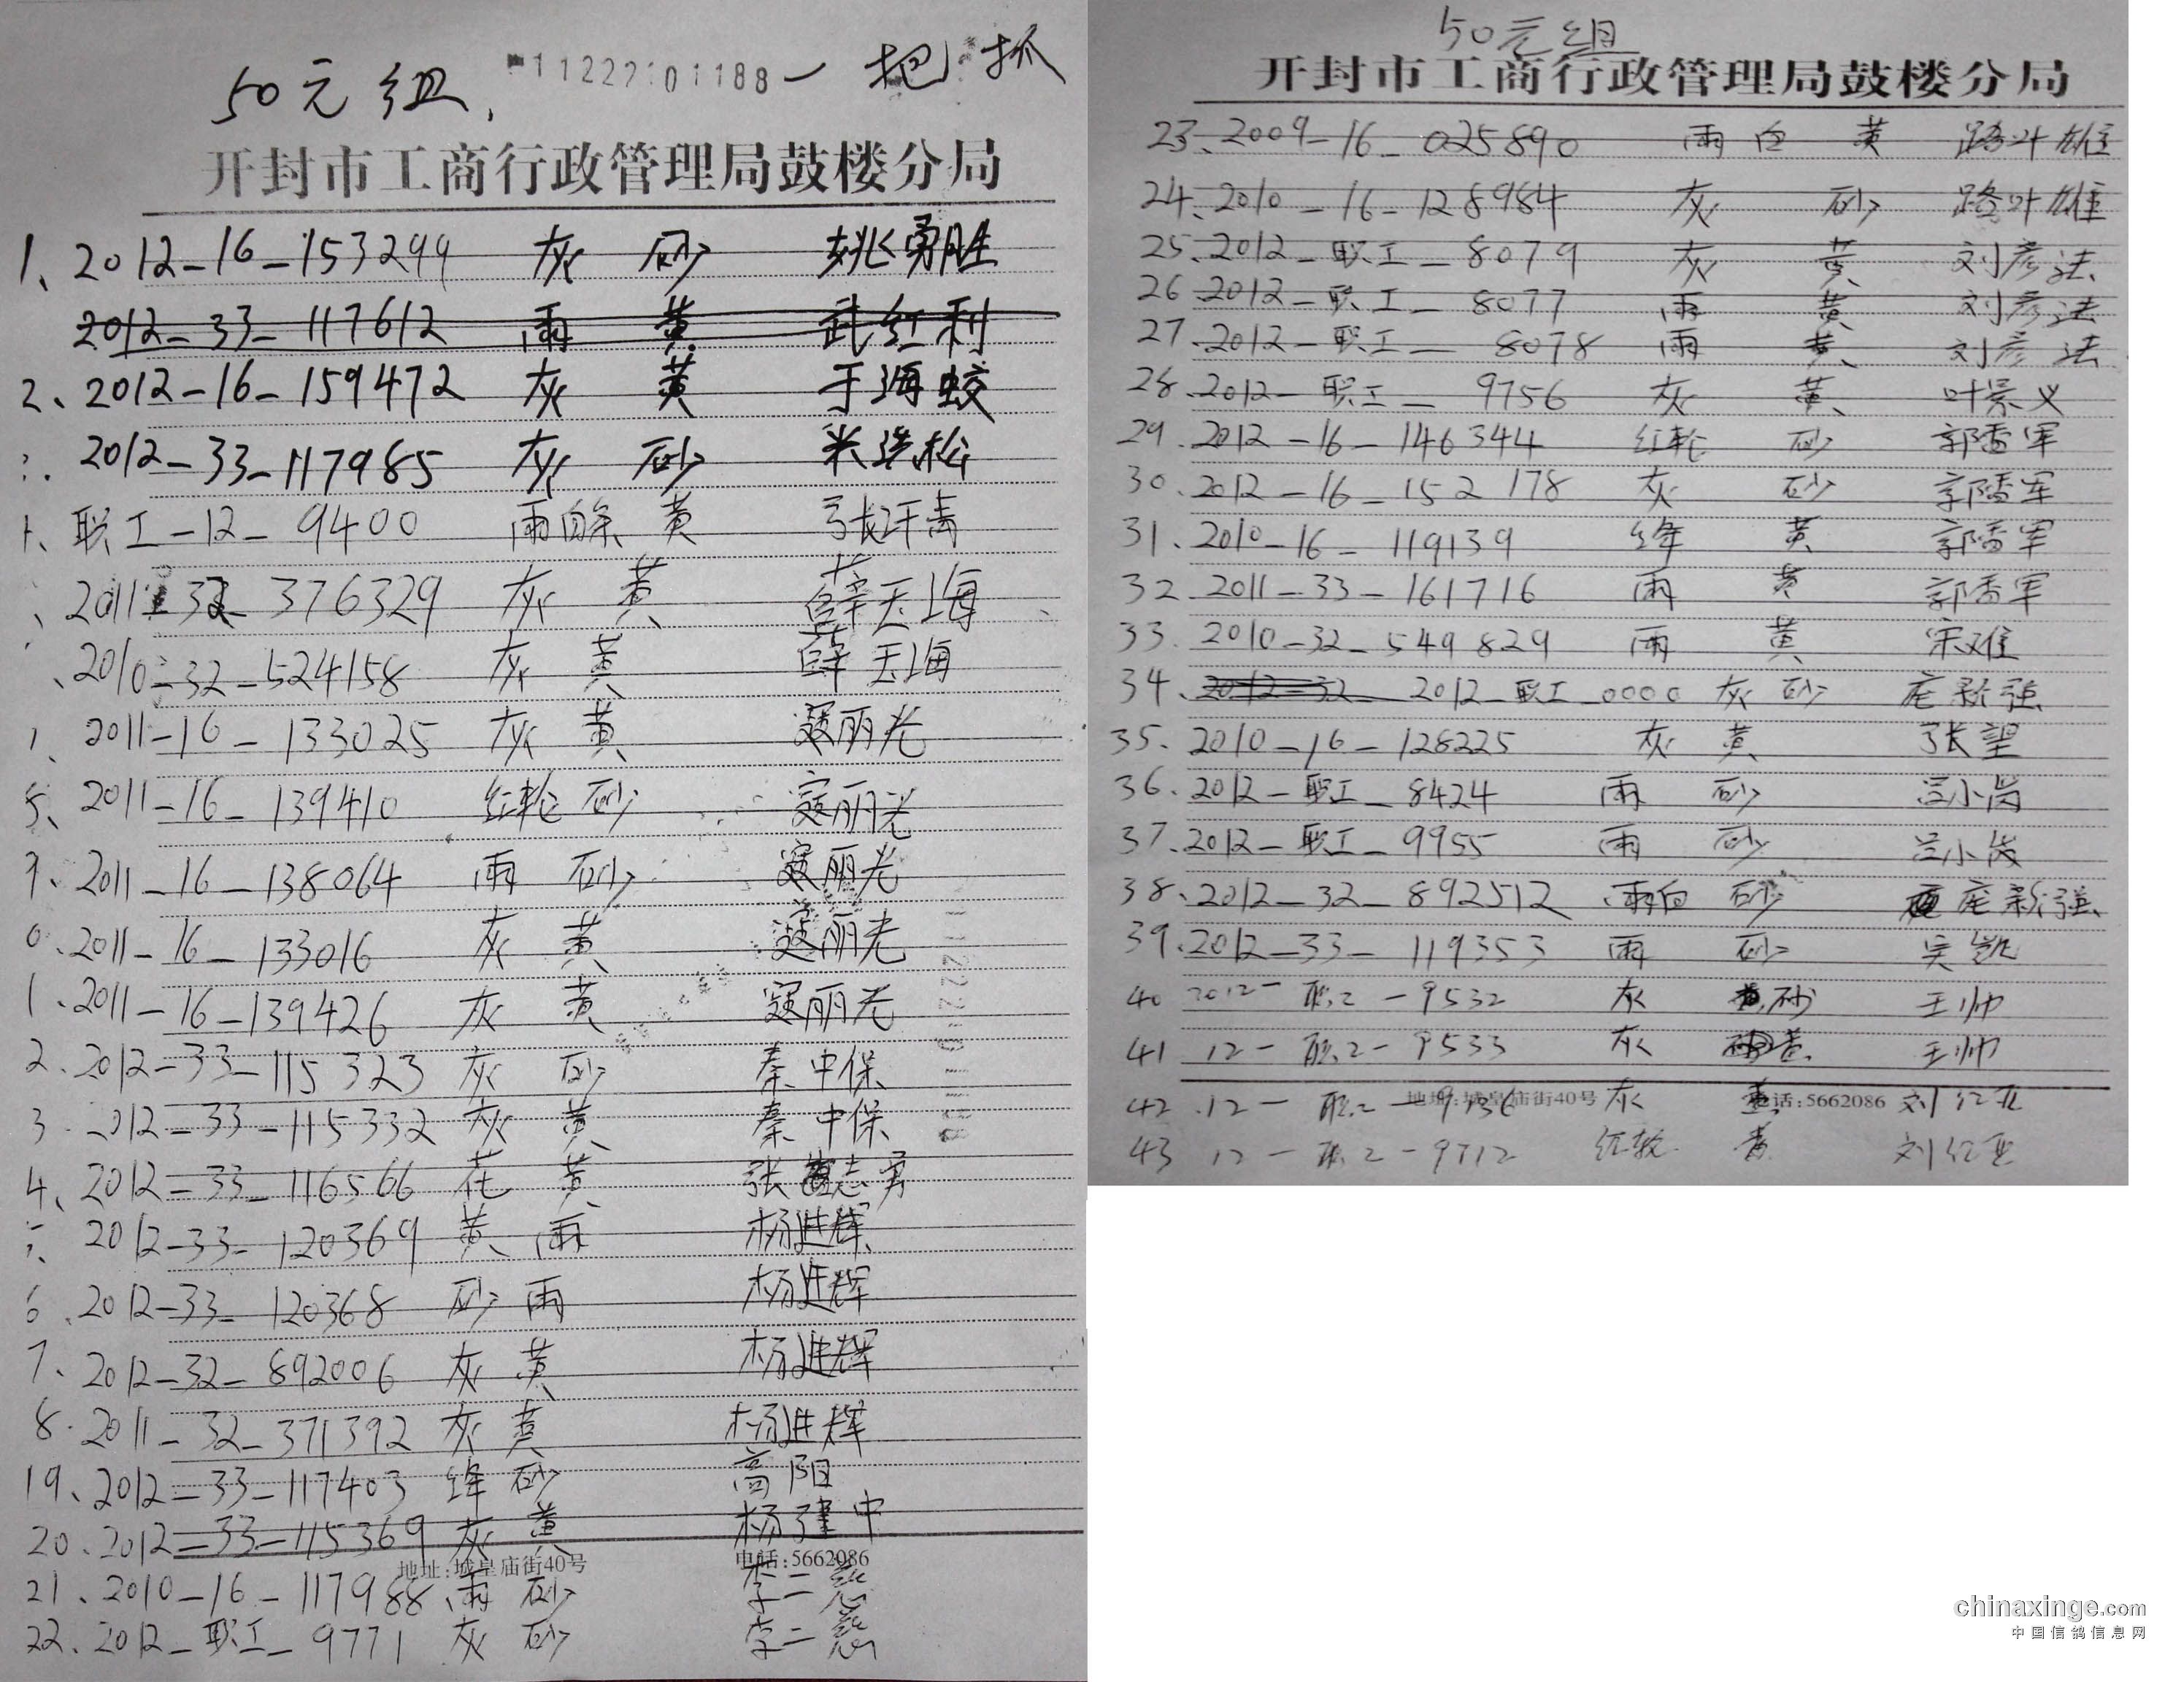 50元组, 一把抓
11222:01188
开封市工商行政管理局鼓楼分局
1、2012-16-153299 灰 砂 姚勇胜
2012-33-117612 雨 黄 武红利
2、2012-16-159472 灰 黄 于海蛟
2012-33-117985 灰 砂 米选松
职工-12-9400 雨白条 黄 张汗青
2011-32-376329 灰 黄 薛天海
2010-32-524158 灰 黄 薛天海
2011-16-133025 灰 黄 寇丽光
2011-16-139410 红轮 砂 寇丽光
9、2011-16-138064 雨 砂 寇丽光
0、2011-16-133016 灰 黄 寇丽光
1、2011-16-139426 灰 黄 寇丽光
2、2012-33-115323 灰 砂 秦中保
3、2012-33-115332 灰 黄 秦中保
4、2012-33-116566 花 黄 张志勇
2012-33-120369 黄 雨 杨进辉
6、2012-33-120368 砂 雨 杨进辉
7、2012-32-892006 灰 黄 杨进辉
8、2011-32-371392 灰 黄 杨进辉
19、2012-33-117403 绛 砂 高阳
20、2012-33-115369 灰 黄 杨建中
地址:城皇庙街40号 电话:5662086
21、2010-16-117988 雨 砂 李二
22、2012-职工-9771 灰 砂 李二
50元组
开封市工商行政管理局鼓楼分局
23、2009-16-025890 雨白 黄 路叶雄
24、2010-16-128984 灰 砂 路叶雄
25、2012-职工-8079 灰 黄 刘彦法
26、2012-职工-8077 雨 黄 刘彦法
27、2012-职工-8078 雨 黄 刘彦法
28、2012-职工-9756 灰 黄 叶景义
29、2012-16-146344 红轮 砂 郭香军
30、2012-16-152178 灰 砂 郭香军
31、2010-16-119139 绛 黄 郭香军
32、2011-33-161716 雨 黄 郭香军
33、2010-32-549829 雨 黄 宋雄
34、2012-32 2012-职工-0000 灰 砂 庞新强
35、2010-16-128225 灰 黄 张望
36、2012-职工-8424 雨 砂 吕小岗
37、2012-职工-9955 雨 砂 吕小岗
38、2012-32-892512 雨白 砂 庞新强
39、2012-33-119353 雨 砂 吴凯
40 2012-职工-9532 灰 砂 王帅
41 12-职工-9533 灰 黄 王帅
42 12-职工-9736 灰 黄 刘红亚
地址:城皇庙街40号 电话:5662086
43 12-职工-9712 红轮 黄 刘红亚
chinaxinge.com
中国信鸽信息网